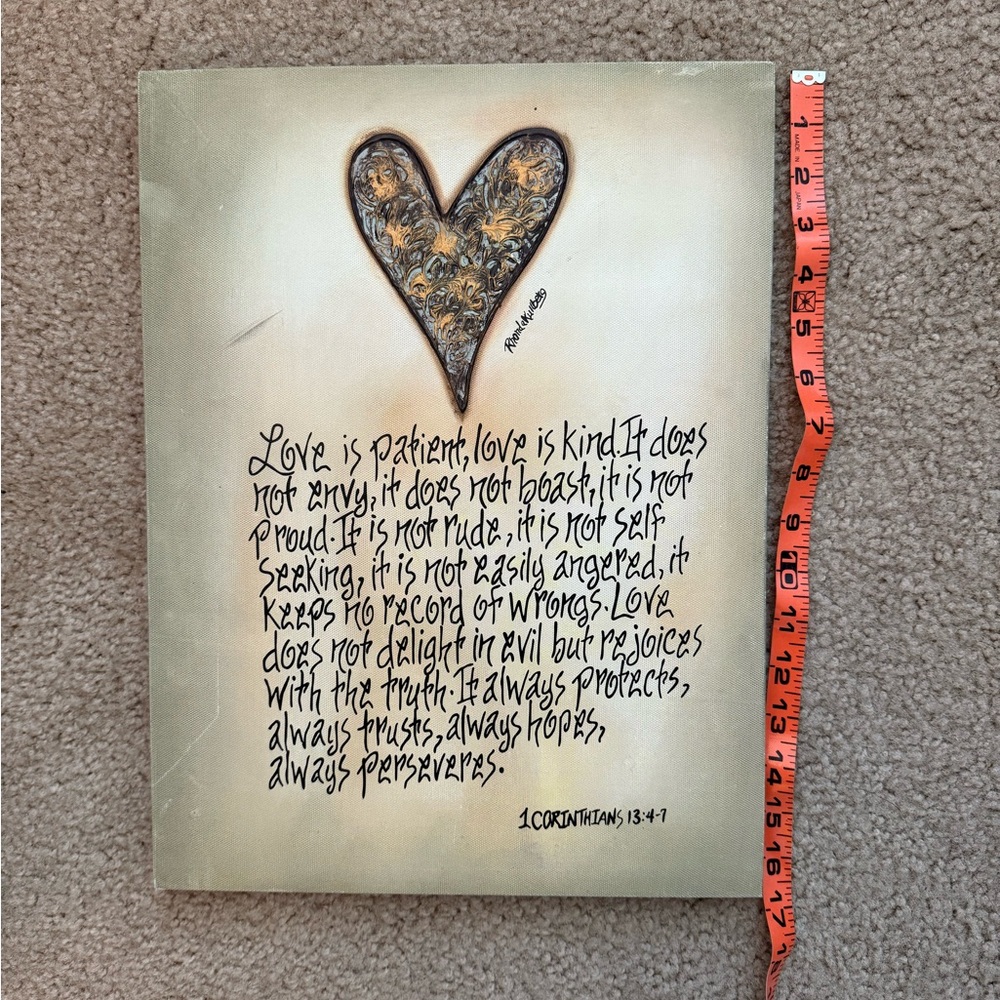 Love is patient, love is kind. It does
not envy, it does not boast, it is not
proud. It is not rude, it is not self
seeking, it is not easily angered, it
keeps no record of wrongs. Love
does not delight in evil but rejoices
with the truth. It always protects,
always trusts, always hopes,
always perseveres.
1 CORINTHIANS 13:4-7
0
1
MADE IN
2
JAPAN
3
4
5
6
7
8
9
10
11
12
13
14
15
16
17